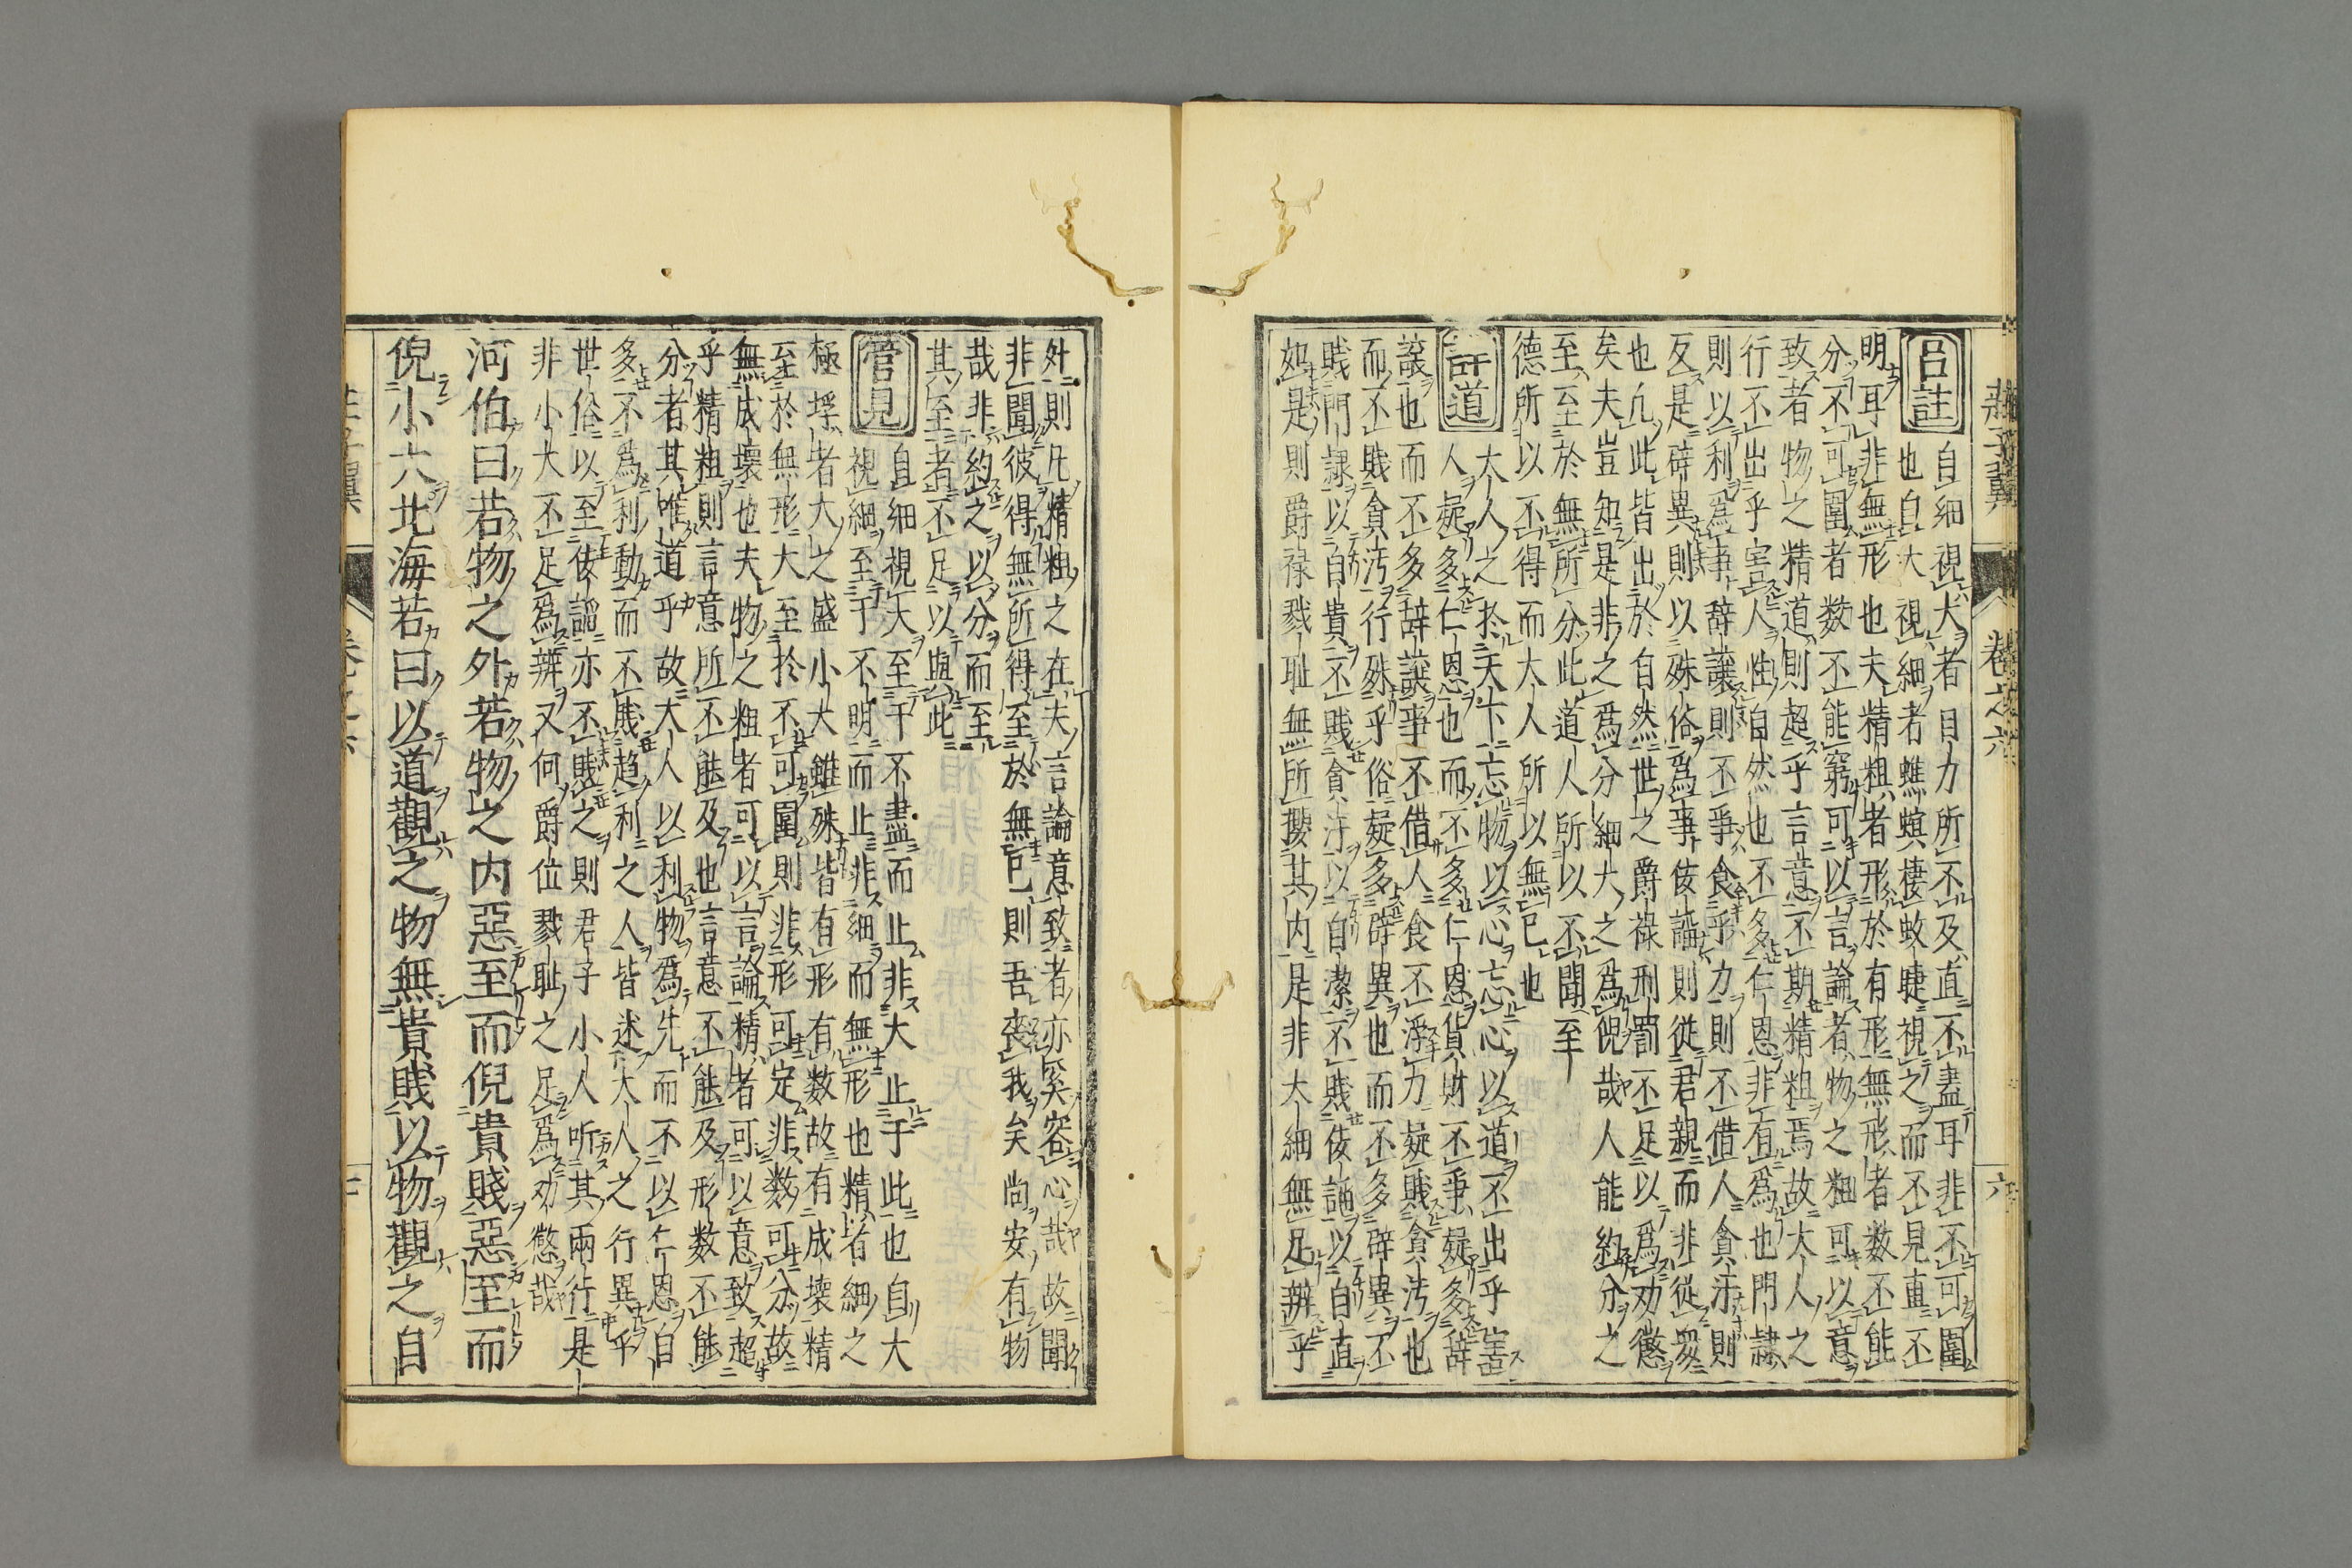 莊子翼 卷之六 六
呂註
自細視大者目力所不及直不盡耳非不可圍
也自大視細者蟭螟棲蚊睫視之而不見直不
明耳非無形也夫精粗者形於有形無形者数不能
分不可圍者数不能窮可以言論者物之粗可以意
致者物之精道則超乎言意不期精粗焉故大人之
行不出乎害人性自然也不多仁恩非有為也門隷
則以利為事辞譲則不爭食乎力則不借人貪汚則
反是辟異則以殊俗為事佞謟則從君親而非從衆
也凢此皆出於自然世之爵禄刑罰不足以為劝懲
矣夫豈知是非之為分細大之為倪哉人能約分之
至至於無所分此道人所以不聞至
德所以不得而大人所以無已也
詳道
大人之於天下忘物以心忘心以道不出乎害
人疑多仁恩也而不多仁恩貨財不爭疑多辞
譲也而不多辞譲事不借人食不浮力疑賎貪汚也
而不賎貪汚行殊乎俗疑多辟異也而不多辟異不
賎門隷以自貴不賎貪汙以自潔不賎佞謟以自直
如是則爵禄戮耻無所攖其内是非大細無足辨乎
外則凡精粗之在夫言論意致者亦奚容心哉故聞
非聞彼得無所得至於無已則吾喪我矣尚安有物
哉非約之以分而至
其至者不足以與此
管見
自細視大至于不盡而止非大止于此也自大
視細至于不明而止非細而無形也精者細之
極垺者大之盛小大雖殊皆有形有数故有成壊精
至於無形大至於不可圍則非形可定非数可分故
無成壊也夫物之粗者可以言論精者可以意致超
乎精粗則言意所不能及也言意不能及形数不能
分者其唯道乎故大人以利物為先而不以仁恩自
多不為利動而不賎趋利之人皆述大人之行異乎
世俗以至佞謟亦不賎之則君子小人听其兩行是
非小大不足為辨又何爵位戮耻之足為劝懲哉
河伯曰若物之外若物之内惡至而倪貴賤惡至而
倪小大北海若曰以道觀之物無貴賎以物觀之自